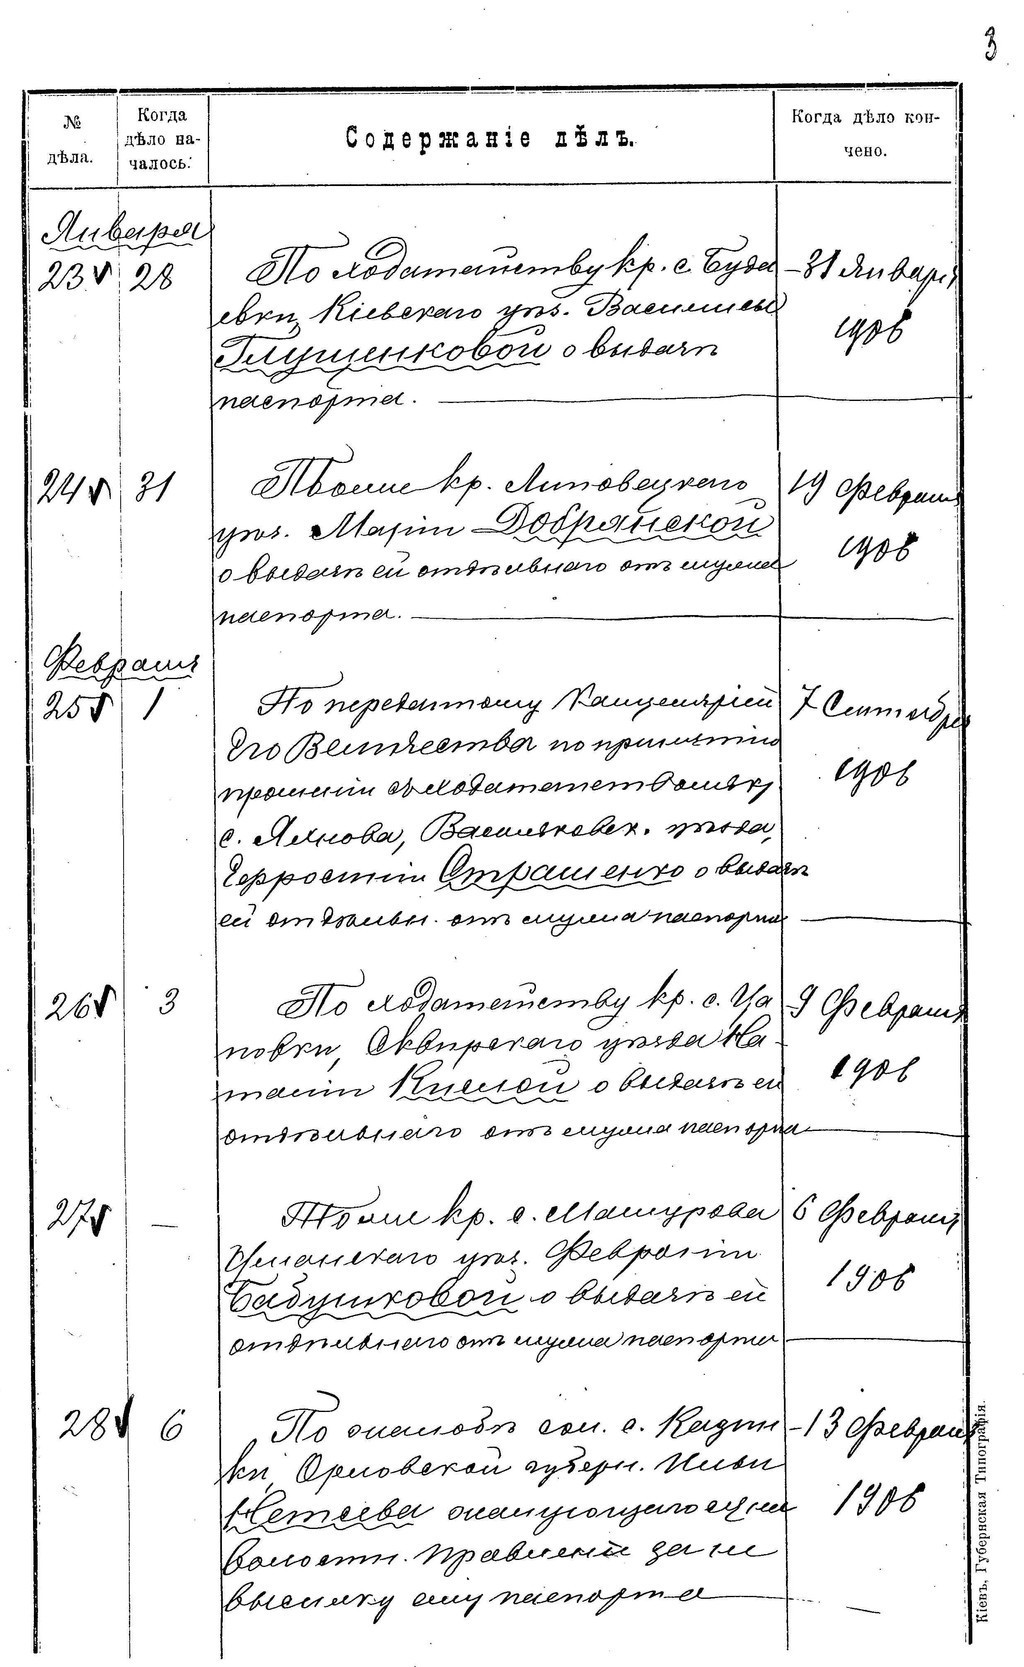 3
№ дѣла.
Когда дѣло началось.
Содержаніе дѣлъ.
Когда дѣло кончено.
Января
23 28 По ходатайству кр. с. Буда- 31 Января
евки, Кіевскаго уѣз. Василисы 1906
Глущенковой о выдачѣ
паспорта.
24 31 Тоже кр. Липовецкаго 19 Февраля
уѣз. Маріи Добрянской 1906
о выдачѣ ей отдѣльнаго отъ мужа
паспорта.
Февраля
25 1 По переданному Канцеляріей 7 Сентября
Его Величества по принятію 1906
прошеній ходатайству кр.
с. Яхнова, Васильковск. уѣзда,
Страшенко о выдачѣ
ей отдѣльн. отъ мужа паспорта
26 3 По ходатайству кр. с. Ца- 9 Февраля
повки, Сквирскаго уѣзда На- 1906
таліи Кислой о выдачѣ ей
отдѣльнаго отъ мужа паспорта
27 — Тоже кр. с. Машурова 6 Февраля
Уманскаго уѣз. Февроніи 1906
Бабушковой о выдачѣ ей
отдѣльнаго отъ мужа паспорта
28 6 По жалобѣ с. Казин- 13 Февраля
ки, Орловской губерн. Ильи 1906
Нетеева жалующагося на
волостн. Правленіе за не
высылку ему паспорта
Кіевъ, Губернская Типографія.